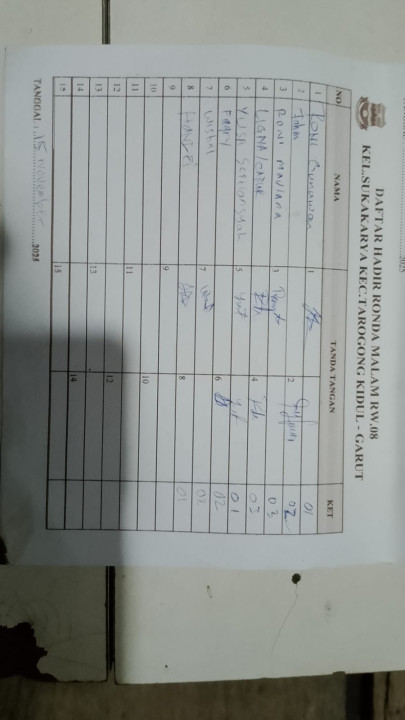 DAFTAR HADIR RONDA MALAM RW.08
KEL.SUKAKARYA KEC.TAROGONG KIDUL - GARUT
NO NAMA TANDA TANGAN KET
1 RONI Gunawan 1 01
2 Johan 2 02
3 RONI MAULANA 3 03
4 4 03
5 YUSA 5 01
6 FERRY 6 02
7 7 02
8 8 01
9 9
10 10
11 11
12 12
13 13
14 14
15 15
TANGGAL : 15 november 2025